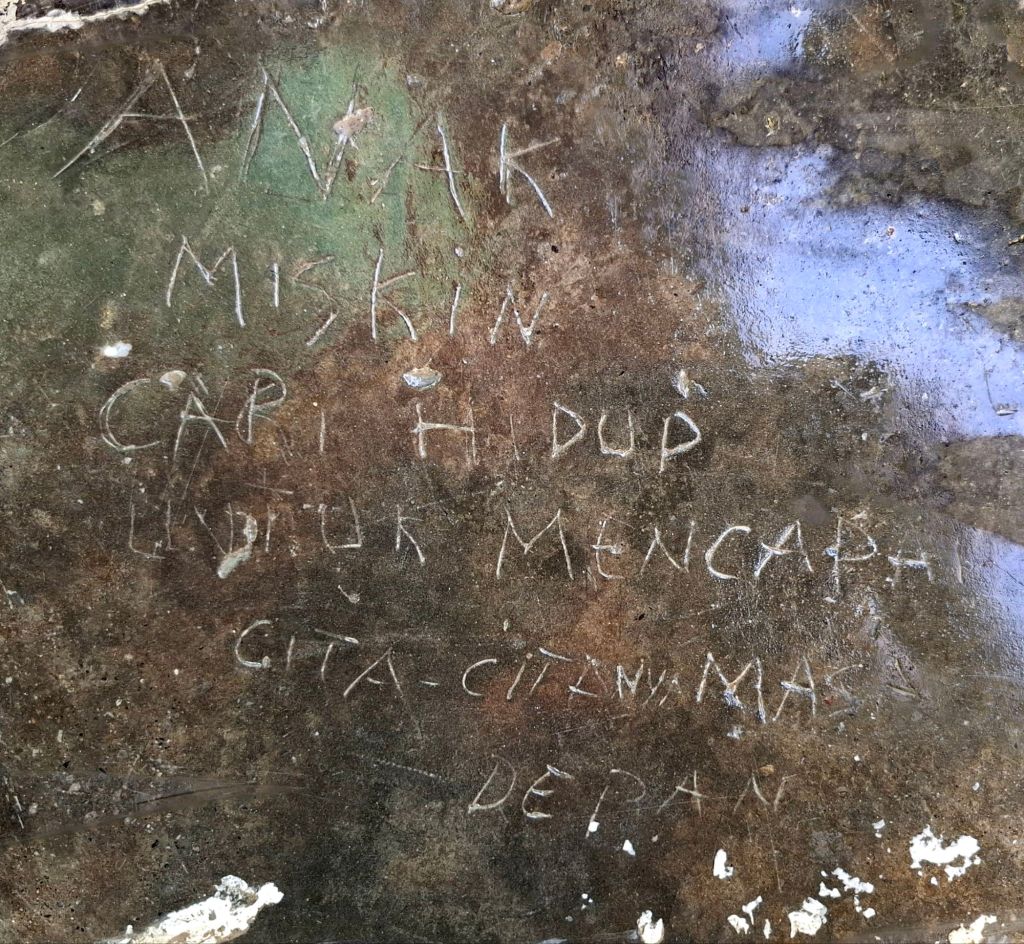 ANAK
MISKIN
CARI HIDUP
UNTUK MENCAPAI
CITA-CITANYA MASA
DEPAN